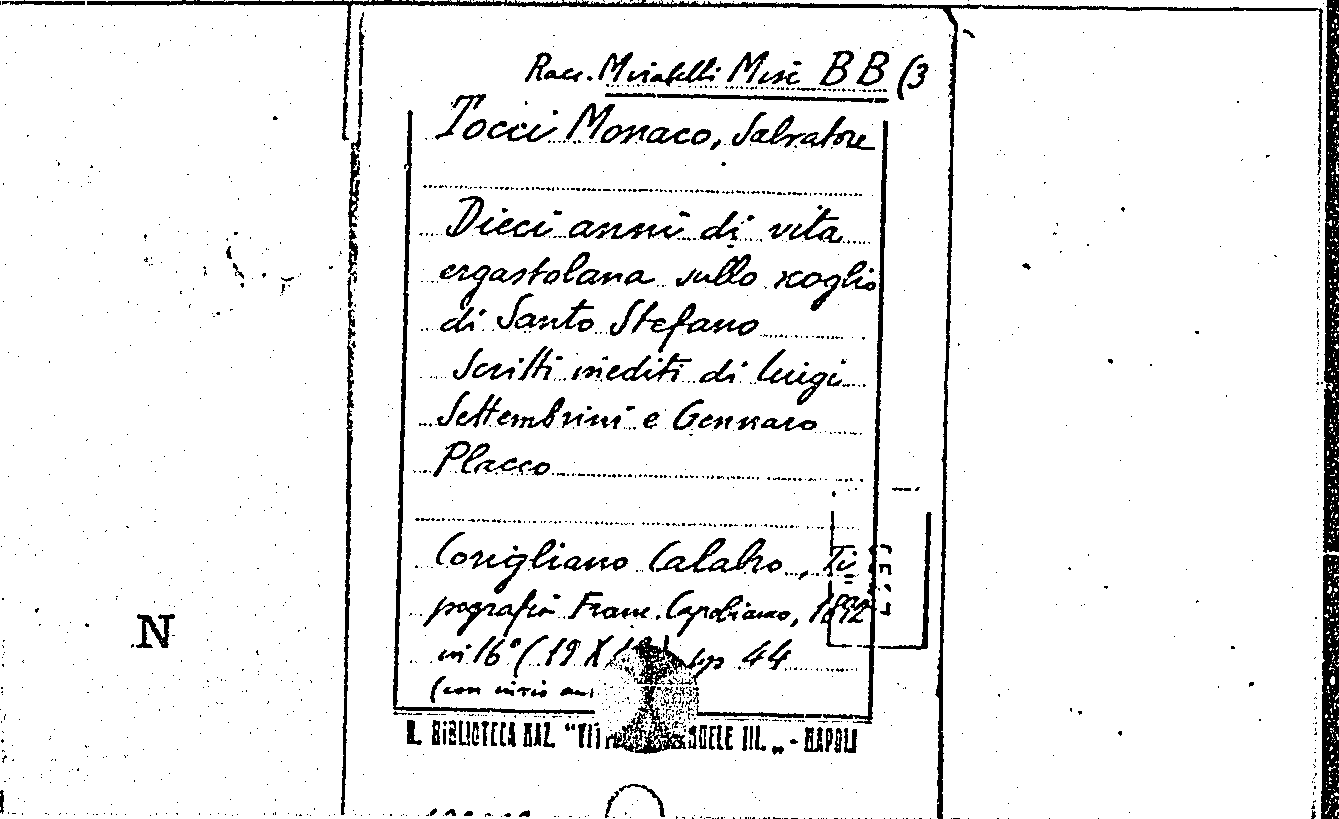 Racc. Miratelli Misc BB (3
Tocci Monaco, Salvatore
Dieci anni di vita
ergastolana sullo scoglio
di Santo Stefano
Scritti inediti di Luigi
Settembrini e Gennaro
Placco
Corigliano Calabro, Ti=
pografia Franc. Capobianco, 1892
in 16° (19 X pp 44
(con invio
N
R. BIBLIOTECA NAZ. "VITT ANUELE III. „ - NAPOLI